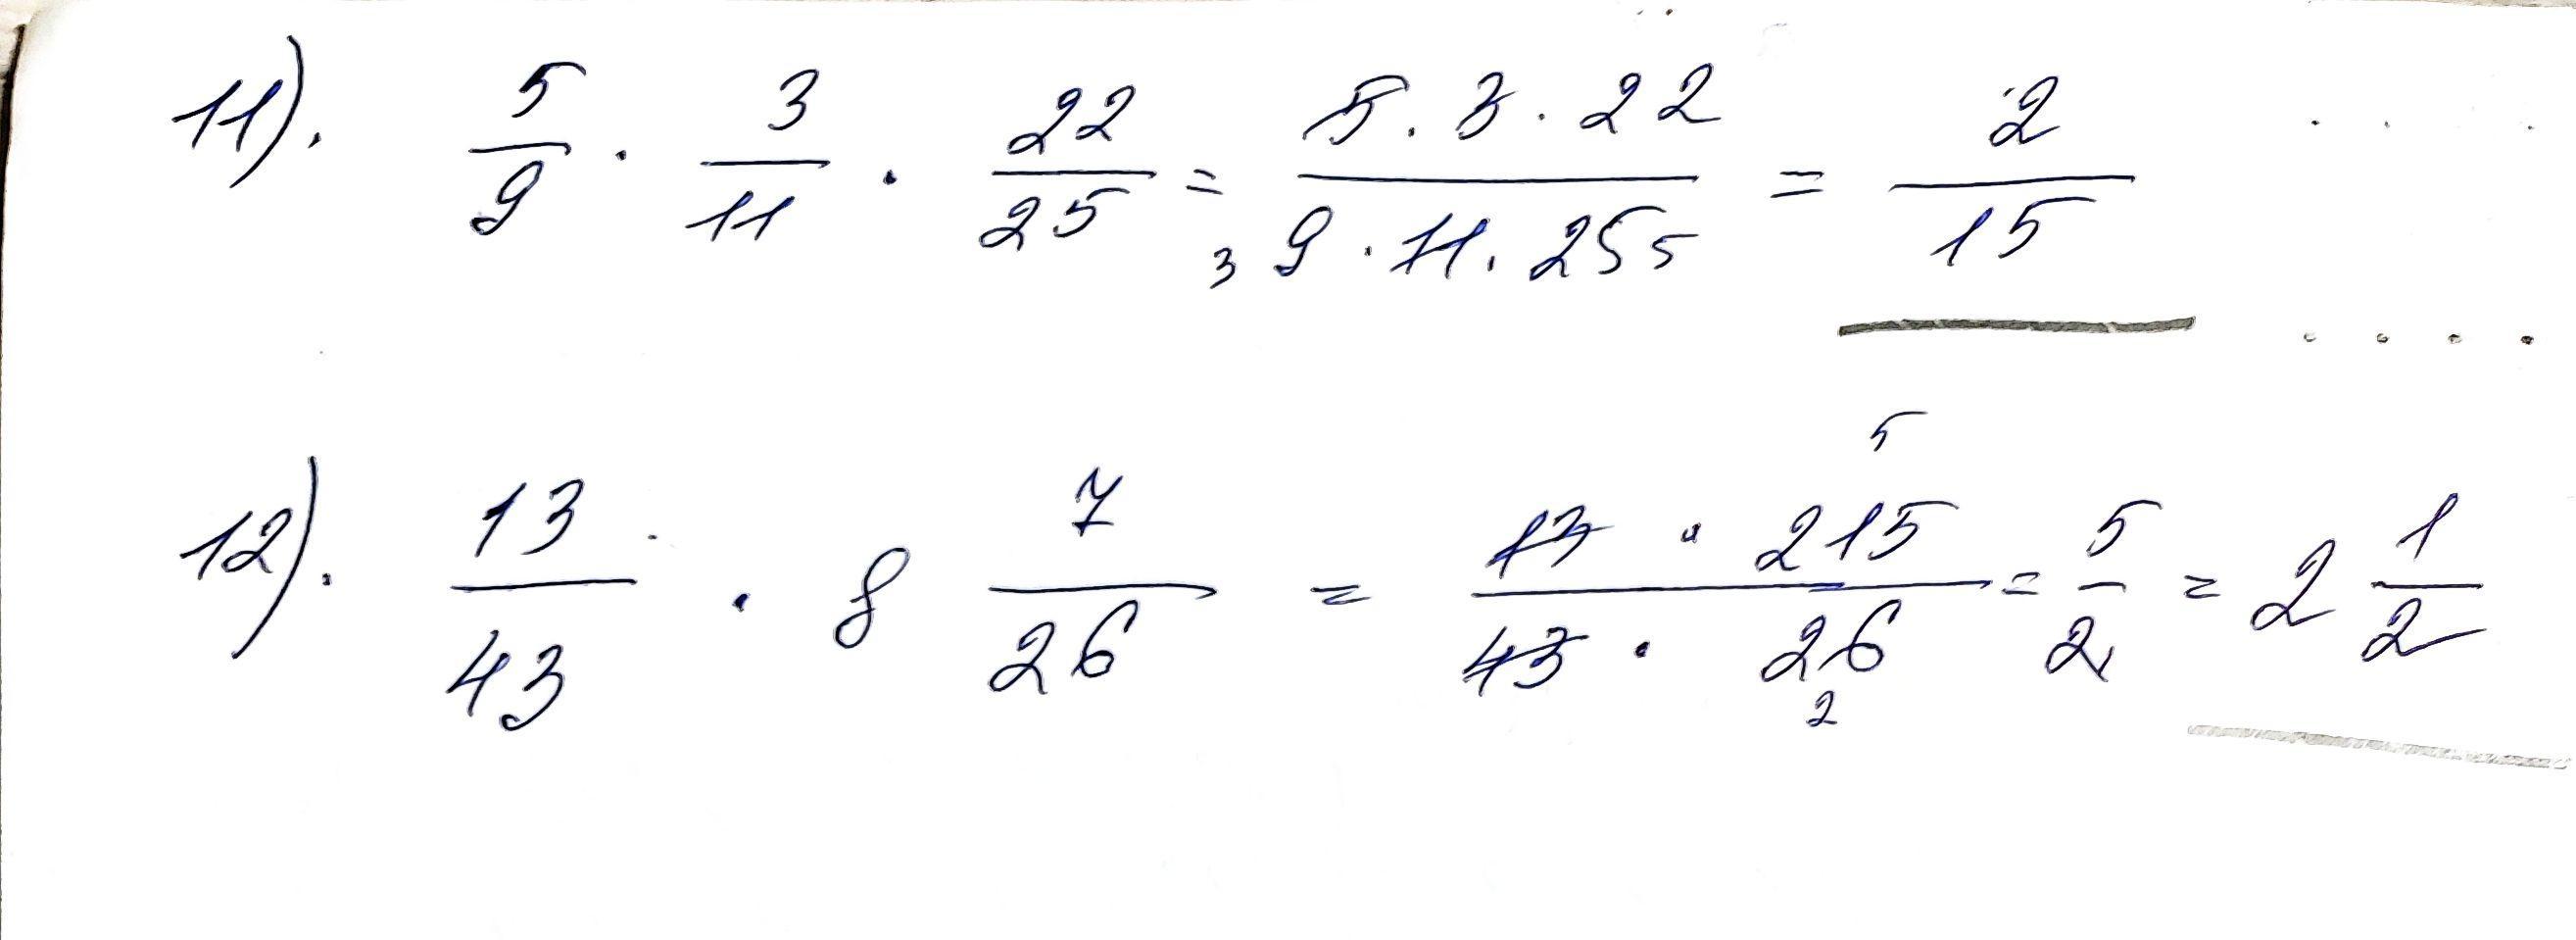 11). 5/9 · 3/11 · 22/25 = 5 · 3 · 22 / 3 9 · 11 · 25 5 = 2/15
12). 13/43 · 8 7/26 = 13 · 215 5 / 43 · 26 2 = 5/2 = 2 1/2